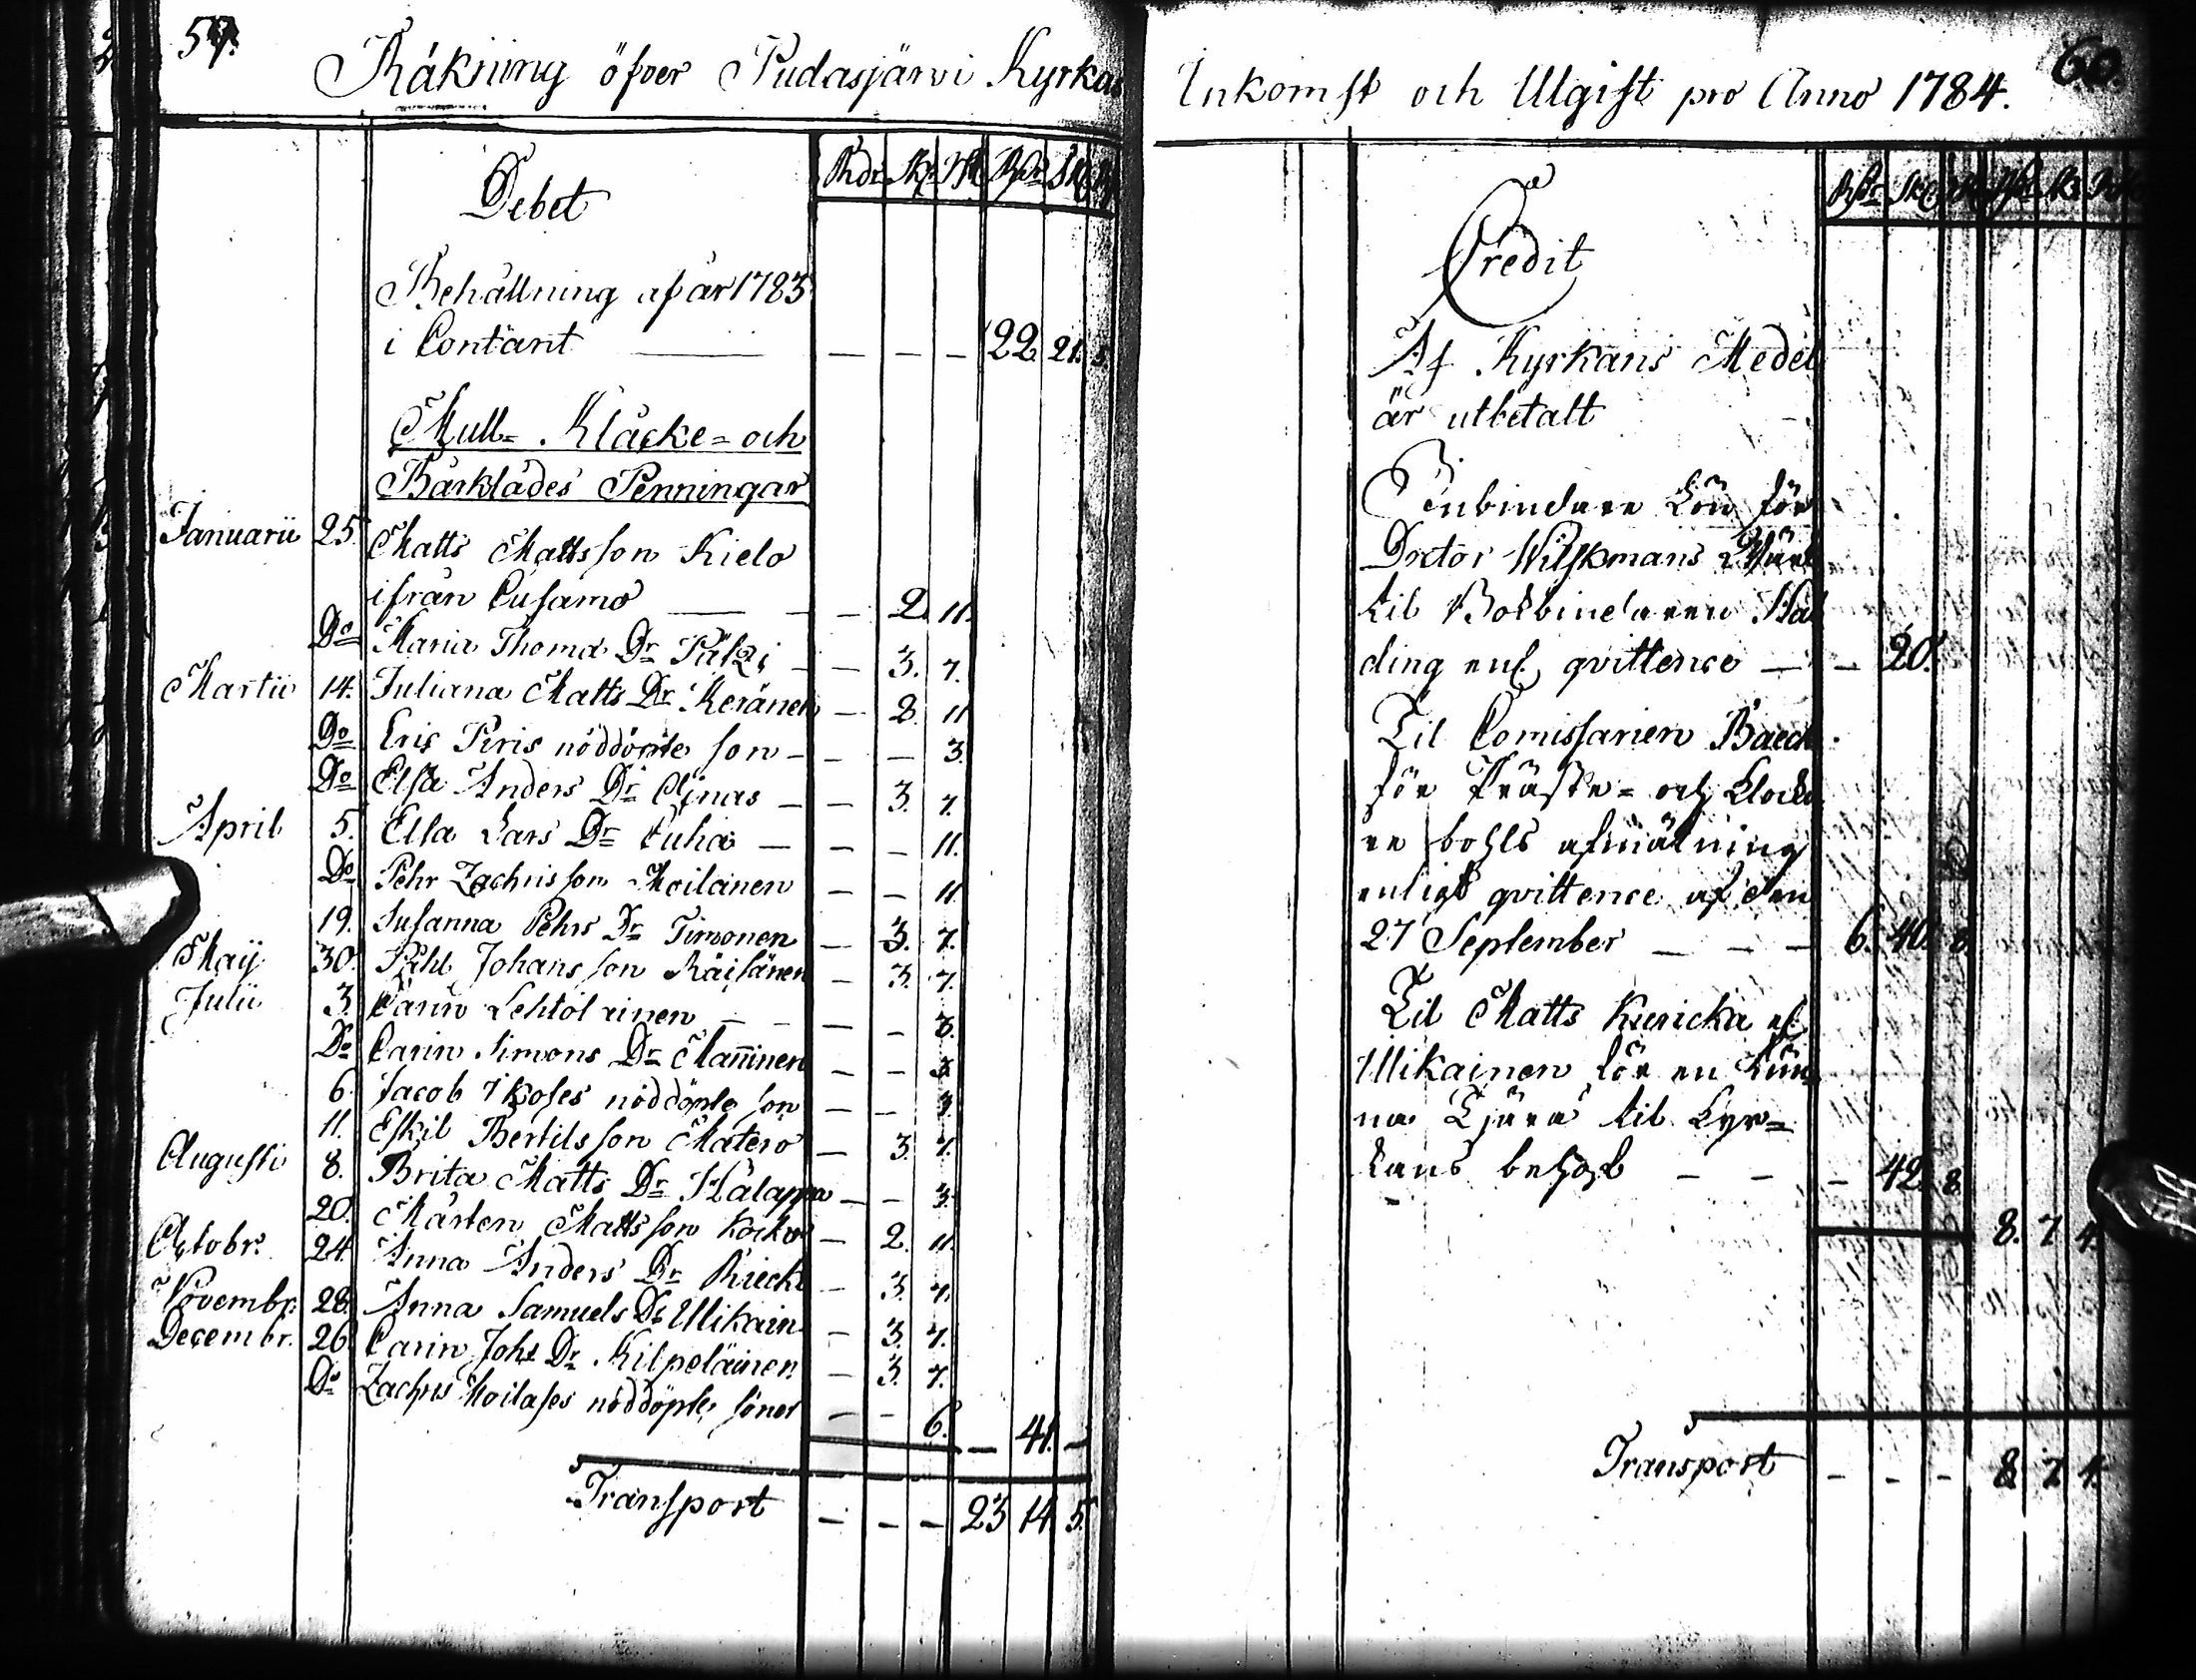 59.
Räkning öfver Pudasjärvi Kyrkas
Debet
Rdr Sk. rst Rdr Sk
Behållning af år 1783
i Contant — — — — 22. 21. 5.
Mull- Klåcke- och
Bårklädes Penningar
Januarii 25. Matts Mattsson Kielo
ifrån Cusamo — — 2. 11.
Do Maria Thoma Dr Pätzi — — 3. 7.
Martii 14. Juliana Matts Dr Keränen — 2. 11
Do Eric Piris nöddöpte son — — — 3.
Do Elsa Anders Dr — — 3. 7.
April 5. Ella Lars Dr Puha — — — 11.
Do Pehr Zachrisson Moilanen — — 11.
19. Susanna Pehrs Dr Timonen — 3. 7.
Maij 30. Påhl Johansson Räisänen — 3. 7.
Julii 3. Carin Lehtolainen — — — — 3.
Do Carin Simons Dr Manninen — — 3
6. Jacob nöddöpte son — — 3.
11. Eskil Bertilsson Matero — 3. 7.
Augusti 8. Brita Matts Dr Hälappa — — 3.
20. Mårten Mattsson Kocko — 2. 11.
Octobr. 24. Anna Anders Dr Riecki — 3. 7.
Novembr. 28. Anna Samuels Dr Ulikain — 3. 7.
Decembr. 26. Carin Johs Dr Kilpeläinen — 3. 7.
Do Zachris Moilases nöddöpte söner — — 6. — 41. —
Transport — — — 23 14. 5.
60.
Inkomst och Utgift pro Anno 1784.
Credit
Af Kyrkans Medel
är utbetalt
Inbindare Lön för
Doctor Wilskmans Wärk
til Bokbindaren Hal
ding enl. qvittence — — 20.
Til Comissarien Baeck
för Präste- och Klocka
re bohls afmätning
enligt qvittence af den
27 September — — — 6. 40. 8.
Til Matts Kuricka el.
Ulikainen för en Tun
na Tjära til Kyr-
kans behof — — — 42. 8.
8. 7. 4.
Transport — — — 8. 7. 4.